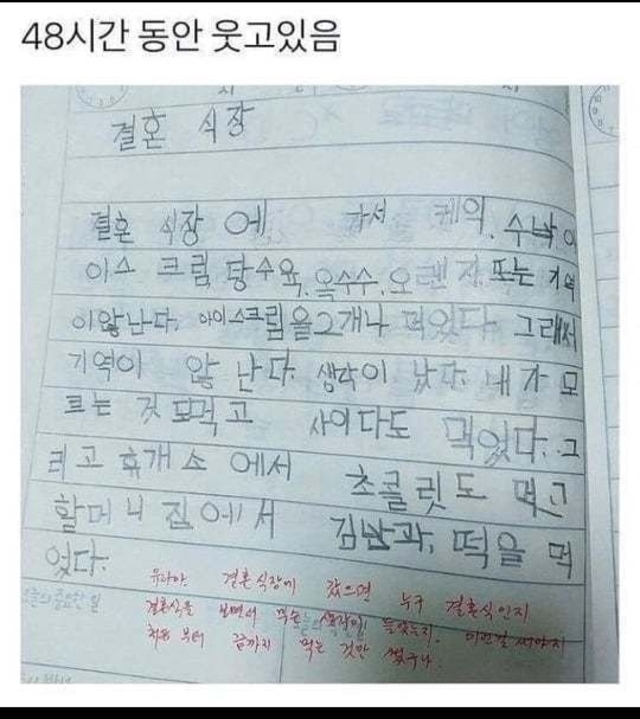 48시간 동안 웃고있음
결혼 식장
결혼 식장 에, 가서 케익, 수박 아
이스 크림, 탕수육, 옥수수, 오렌지, 또는 기역
이않난다. 아이스크림을2개나 먹었다. 그래서
기역이 않 난다. 생각이 났다. 내가 모
르는 것 도먹고 사이다도 먹었다. 그
리고 휴개소 에서 초콜릿도 먹고
할머니 집에서 김밥과, 떡을 먹
었다.
유라야. 결혼식장에 갔으면 누구 결혼식인지
결혼식을 보면서 무슨 생각이 들었는지. 이런걸 써야지
처음 부터 끝까지 먹는 것만 썼구나.
오늘의 중요한 일